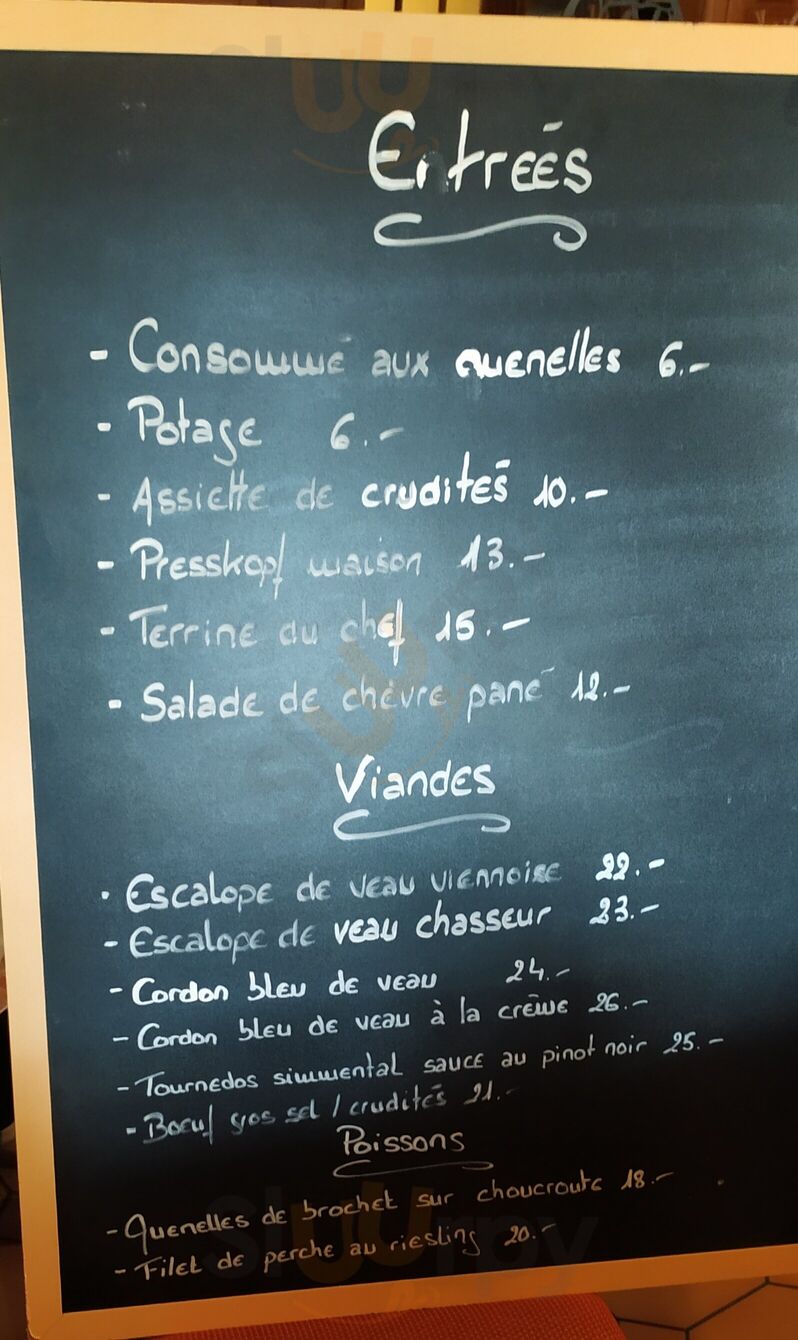 Entreés
- Consommé aux quenelles 6.-
- Potage 6.-
- Assiette de crudités 10.-
- Presskopf maison 13.-
- Terrine du chef 15.-
- Salade de chèvre pané 12.-
Viandes
- Escalope de veau viennoise 22.-
- Escalope de veau chasseur 23.-
- Cordon bleu de veau 24.-
- Cordon bleu de veau à la crème 26.-
- Tournedos simmental sauce au pinot noir 25.-
- Boeuf gros sel / crudités 21.-
Poissons
- Quenelles de brochet sur choucroute 18.-
- Filet de perche au riesling 20.-
Sluurpy